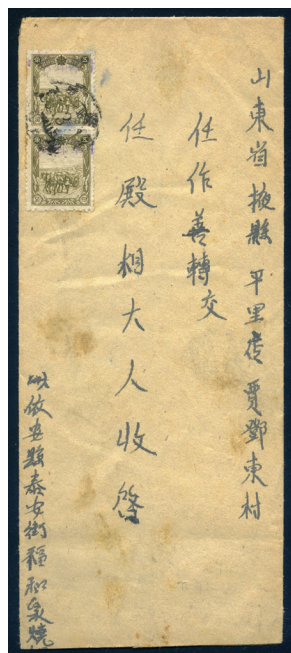 山東省掖縣平里店賈鄧東村
任作善轉交
任殿相大人收啓
依安縣泰安街福和泉燒